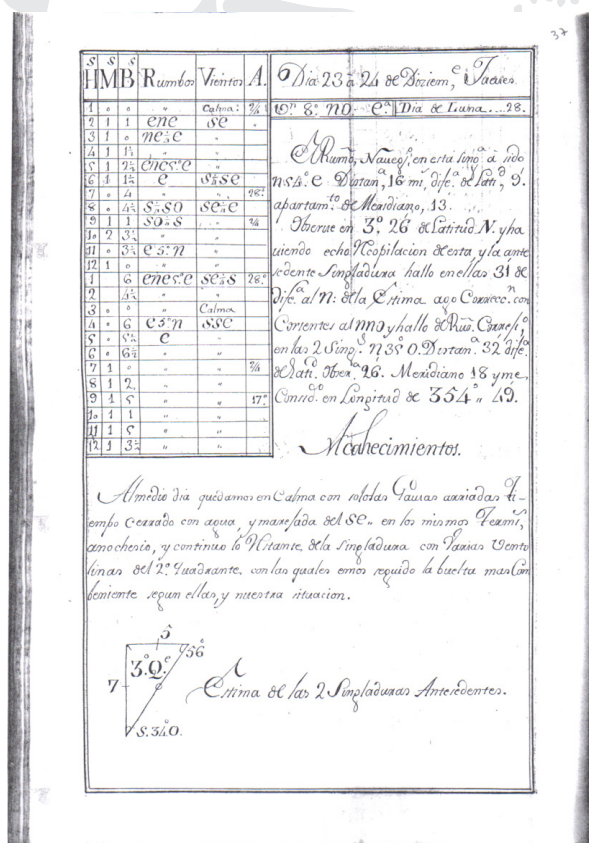 37
H M B Rumbos Vientos A.
1 0 0 " Calma: 3/4
2 1 1 ene se "
3 1 0 "
4 1 1½ " "
5 1 2½ enes:e "
6 1 1½ e
7 " 4 " " 18:
8
9 1 1
10 2 3½ " "
11 0 3½ e5:n "
12 1 0 " "
1 6 enes:e 28:
2 4½ " "
3 0 0 " Calma
4 6 e5:n sse
5 e "
6 0 6½ " "
7 1 0 " "
8 1 2 " "
9 1 5 " " 17:
10 1 1 " "
11 1 5 " "
12 1 3½ " "
Dia 23 a 24 de Diziem,e Jueves
Dia de Luna....28.
A Rumo, Naveg,n en esta sing,a a sido
n54:e Distan,a 16 mi, dife,a de lati,d 9.
apartam.to de Meridiano, 13.
Oberue en 3.º 26 de Latitud N. y ha
uiendo echo Rcopilacion de esta, y la ante
sedente Singladura hallo en ellas 31 de
dife,a al n: de la Estima ago Correcc.n con
Corientes al nno y hallo de Rum. Correji,o
en las 2 Sing.s n35 o. Distan.a 32 dife,a
de Lati.d Obser.a 26. Meridiano 18 y me
Consid.o en Longitud de 354" 49.
Acahecimientos.
Al medio dia quedamos en Calma con solo las Gauias arriadas ti-
empo Cerrado con agua, y marejada del se., en los mismos Termi,s
anochesio, y continuo lo Restante, de la singladura con Varias Vento
linas del 2º Quadrante, con las quales emos seguido la buelta mas Con
beniente segun ellas, y nuestra situacion.
5
56
3.º Q.e
7
S.34.O.
A
Estima de las 2 Singladuras Antesedentes.